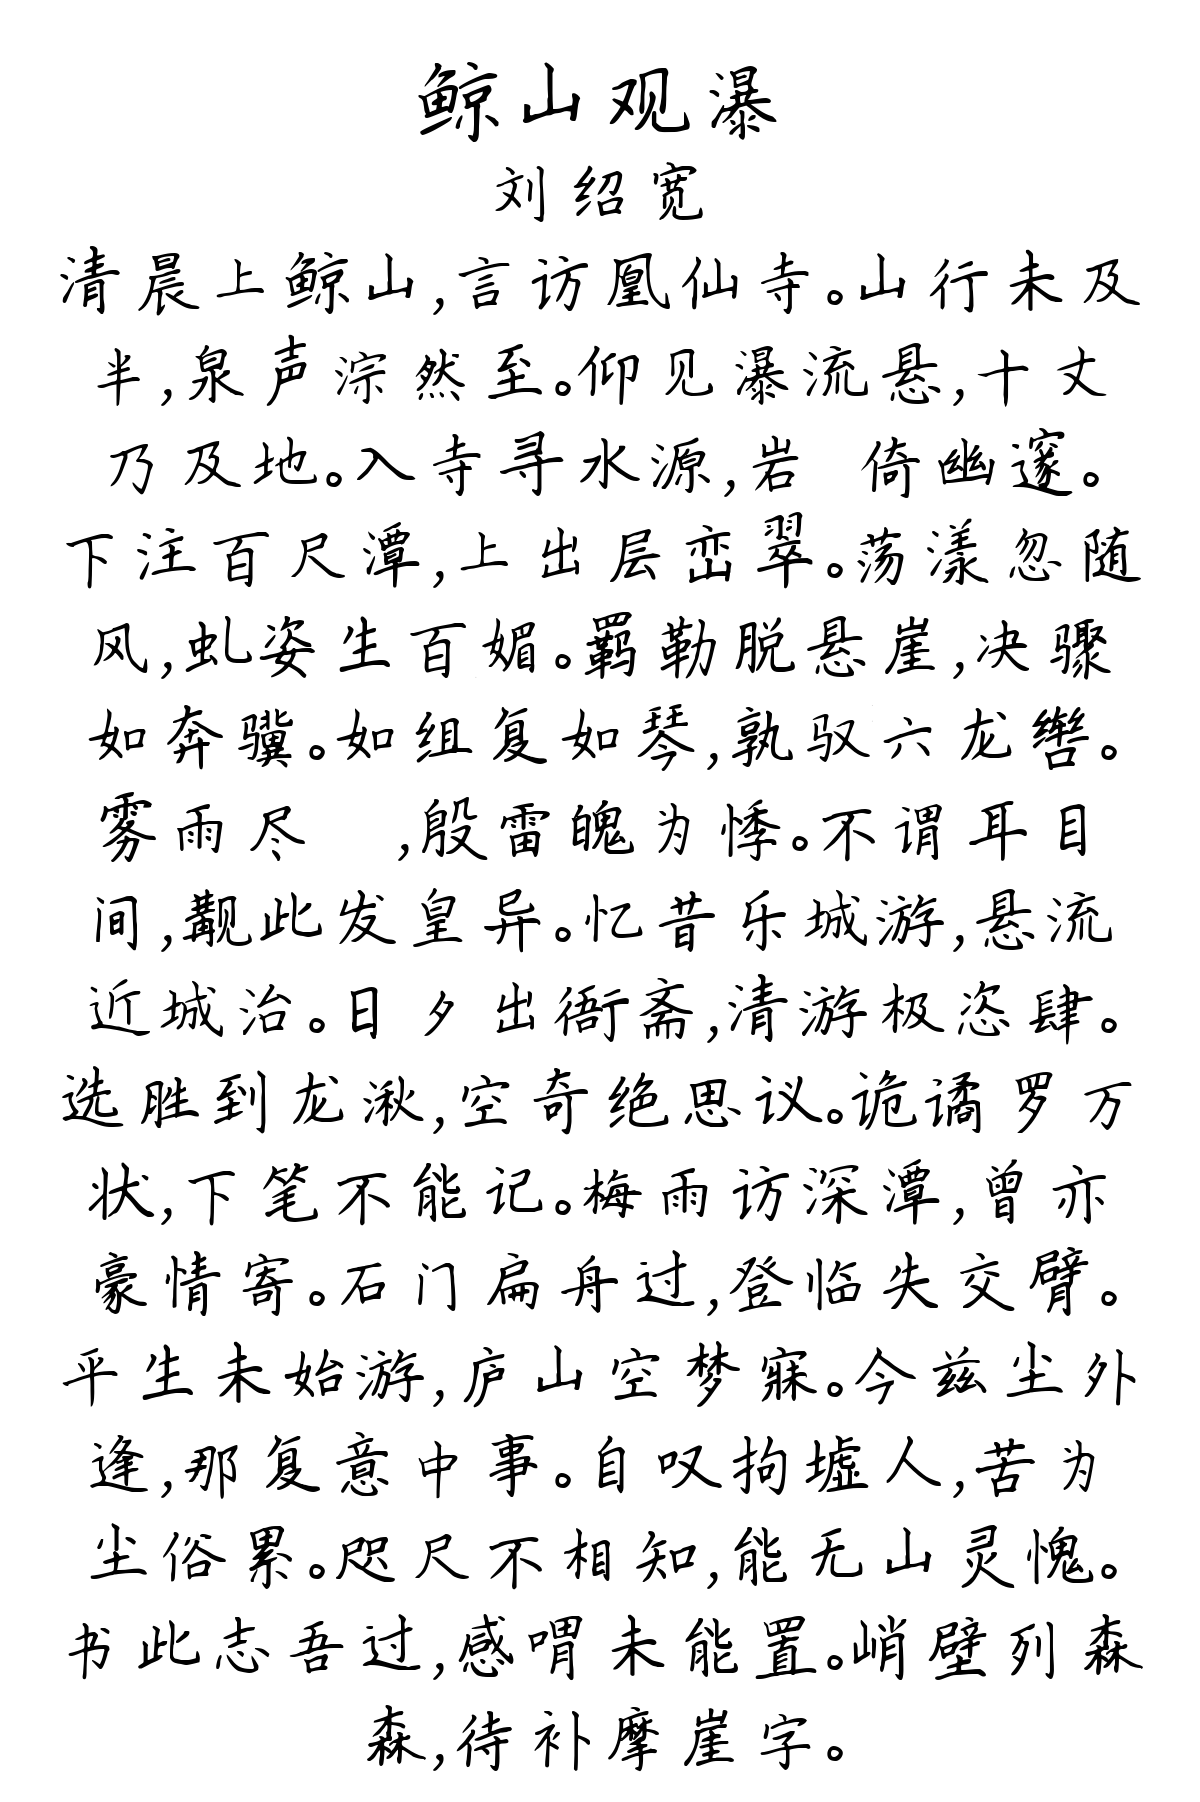 鲸山观瀑
刘绍宽
清晨上鲸山,言访凰仙寺。山行未及
半,泉声淙然至。仰见瀑流悬,十丈
乃及地。入寺寻水源,岩 倚幽邃。
下注百尺潭,上出层峦翠。荡漾忽随
风,虬姿生百媚。羁勒脱悬崖,决骤
如奔骥。如组复如琴,孰驭六龙辔。
雾雨尽 ,殷雷魄为悸。不谓耳目
间,觏此发皇异。忆昔乐城游,悬流
近城治。日夕出衙斋,清游极恣肆。
选胜到龙湫,空奇绝思议。诡谲罗万
状,下笔不能记。梅雨访深潭,曾亦
豪情寄。石门扁舟过,登临失交臂。
平生未始游,庐山空梦寐。今兹尘外
逢,那复意中事。自叹拘墟人,苦为
尘俗累。咫尺不相知,能无山灵愧。
书此志吾过,感喟未能置。峭壁列森
森,待补摩崖字。